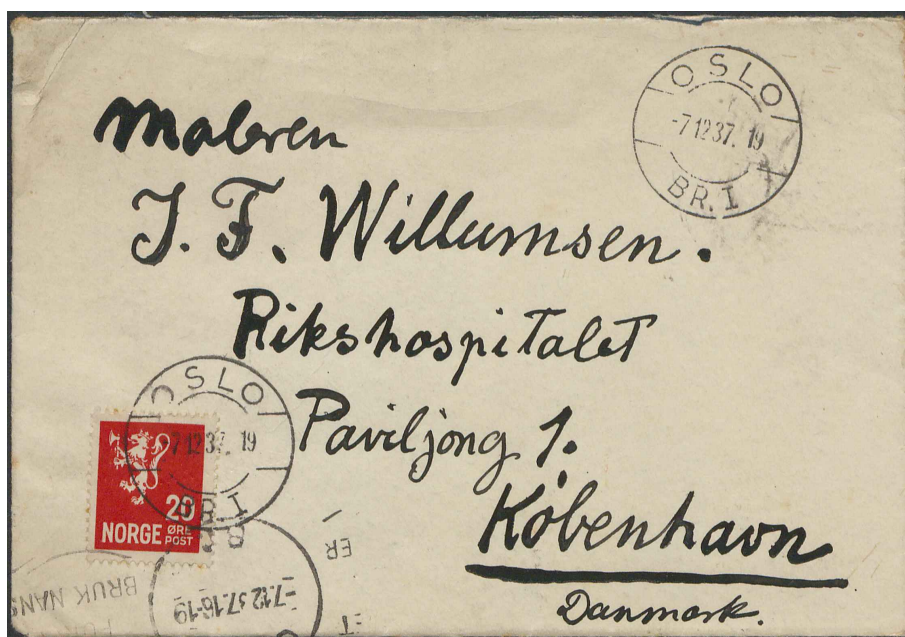 OSLO
-7 12 37. 19
BR. I
Maleren
J. F. Willumsen.
Rikshospitalet
Paviljong 1.
København
Danmark.
OSLO
7 12 37. 19
BR. I
20
NORGE ØRE POST
-7.12.37.16-19
BRUK NANS
ER
ET